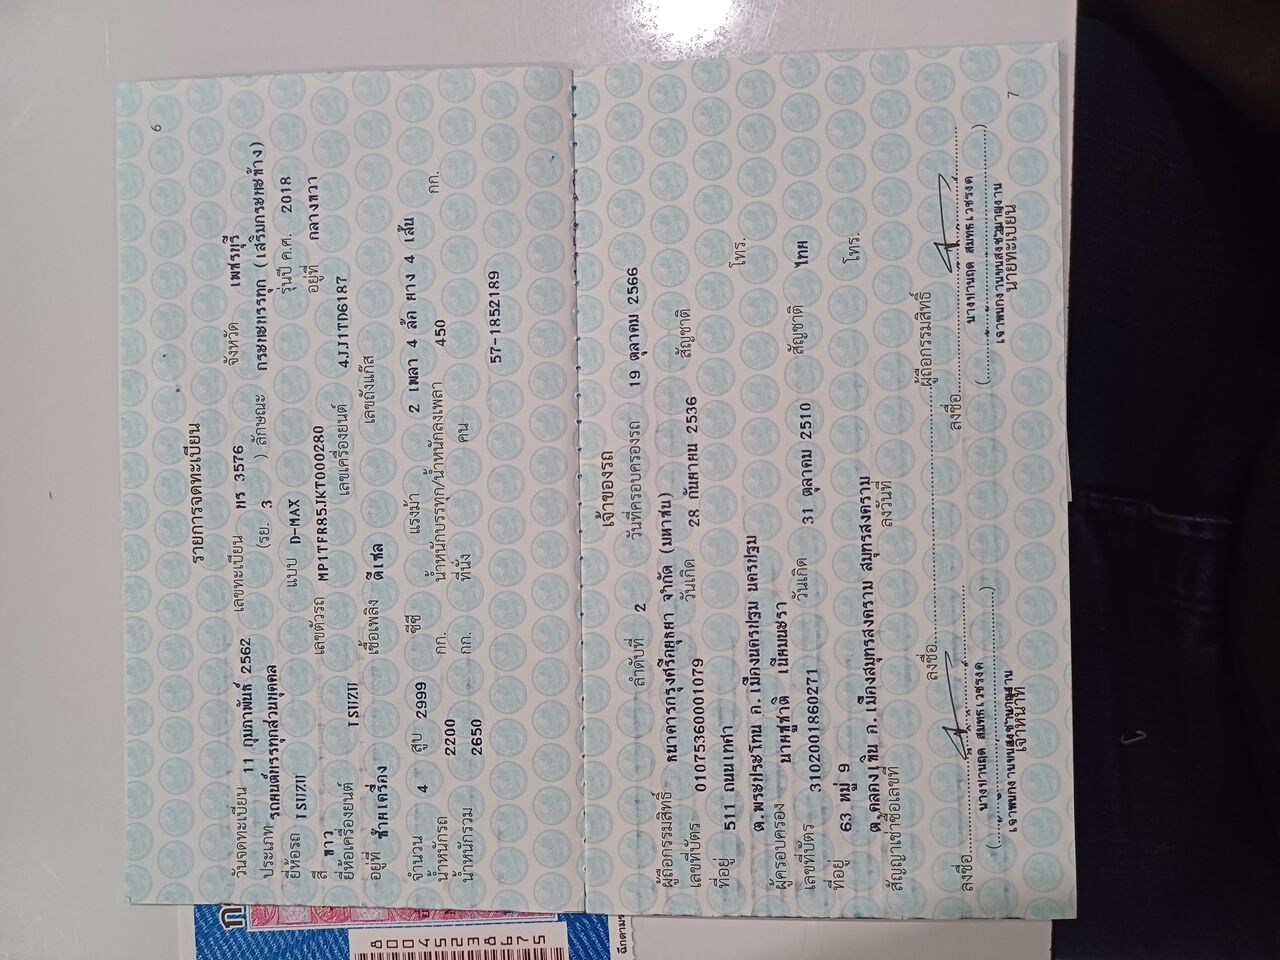 6
รายการจดทะเบียน
วันจดทะเบียน 11 กุมภาพันธ์ 2562 เลขทะเบียน 3576 จังหวัด เพชรบุรี
ประเภท รถยนต์บรรทุกส่วนบุคคล (รย. 3 ) ลักษณะ กระบะบรรทุก (เสริมกระบะข้าง)
ยี่ห้อรถ ISUZU แบบ D-MAX รุ่นปี ค.ศ. 2018
สี ขาว เลขตัวรถ MP1TFR85JKT000280 อยู่ที่ กลางขวา
ยี่ห้อเครื่องยนต์ ISUZU เลขเครื่องยนต์ 4JJ1TD6187
อยู่ที่ ซ้ายเครื่อง เชื้อเพลิง ดีเซล เลขถังแก๊ส
จำนวน 4 สูบ 2999 ซีซี แรงม้า 2 เพลา 4 ล้อ ยาง 4 เส้น
น้ำหนักรถ 2200 กก. น้ำหนักบรรทุก/น้ำหนักลงเพลา 450 กก.
น้ำหนักรวม 2650 กก. ที่นั่ง คน
57-1852189
เจ้าของรถ
ลำดับที่ 2 วันที่ครอบครองรถ 19 ตุลาคม 2566
ผู้ถือกรรมสิทธิ์ ธนาคารกรุงศรีอยุธยา จำกัด (มหาชน)
เลขที่บัตร 0107536001079 วันเกิด 28 กันยายน 2536 สัญชาติ
ที่อยู่ 511 ถนนเทศา
ต.พระประโทน อ.เมืองนครปฐม นครปฐม โทร.
ผู้ครอบครอง นายชูชาติ เนียมนะรา
เลขที่บัตร 3102001860271 วันเกิด 31 ตุลาคม 2510 สัญชาติ ไทย
ที่อยู่ 63 หมู่ 9
ต.คลองเขิน อ.เมืองสมุทรสงคราม สมุทรสงคราม โทร.
สัญญาเช่าซื้อเลขที่ ลงวันที่
ลงชื่อ ผู้ถือกรรมสิทธิ์
ลงชื่อ ลงชื่อ
เจ้าพนักงานขนส่งชำนาญงาน เจ้าพนักงานขนส่งชำนาญงาน
เจ้าหน้าที่ นายทะเบียน
7